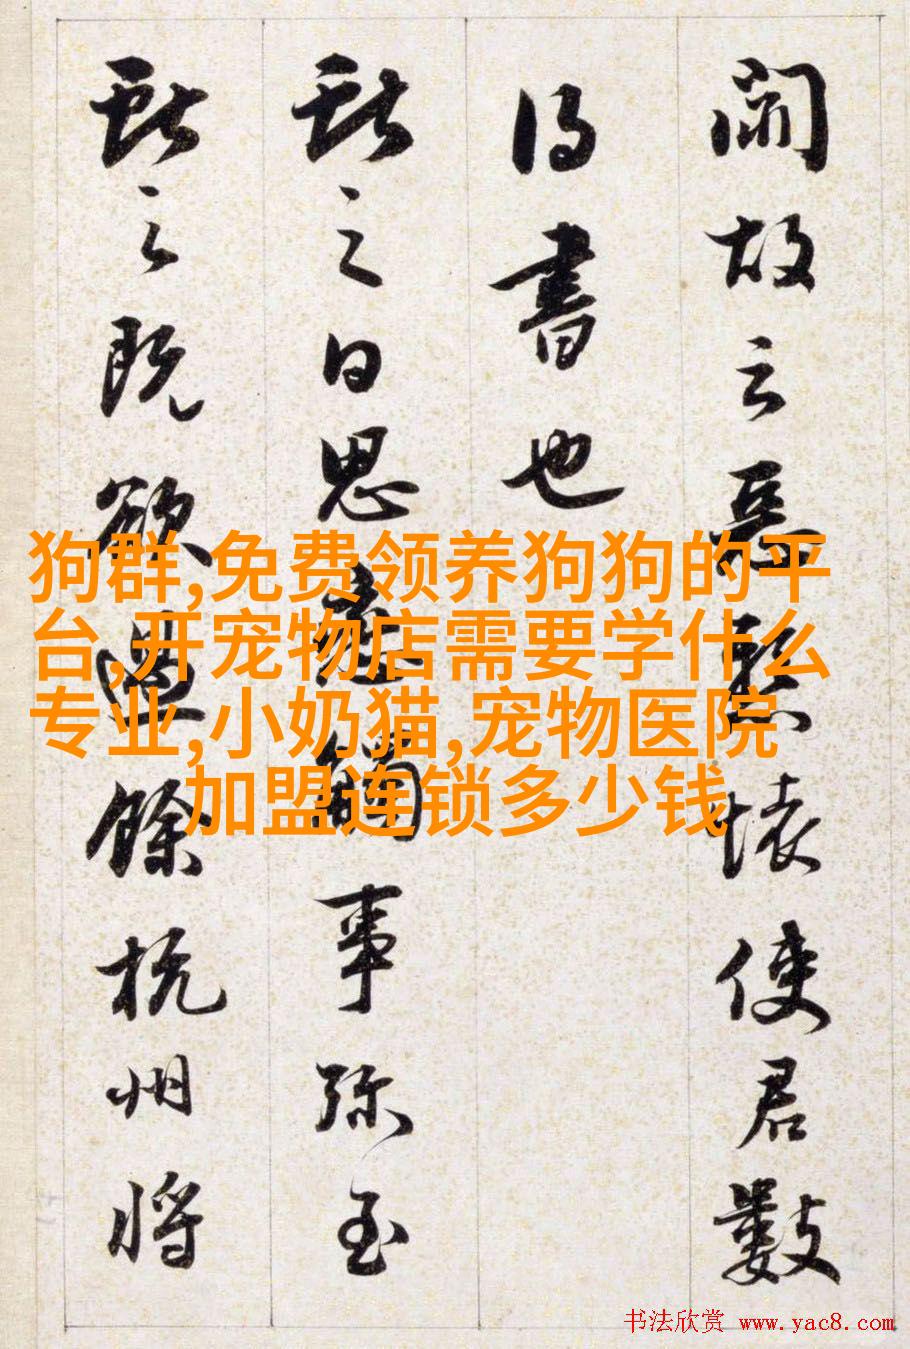 故云惡懸懷使君數
得書也
獻之日思戀觸事弥至
獻之既欲過餘杭州將
狗群,免费领养狗狗的平
台,开宠物店需要学什么
专业,小奶猫,宠物医院
加盟连锁多少钱
书法欣赏 www.yac8.com